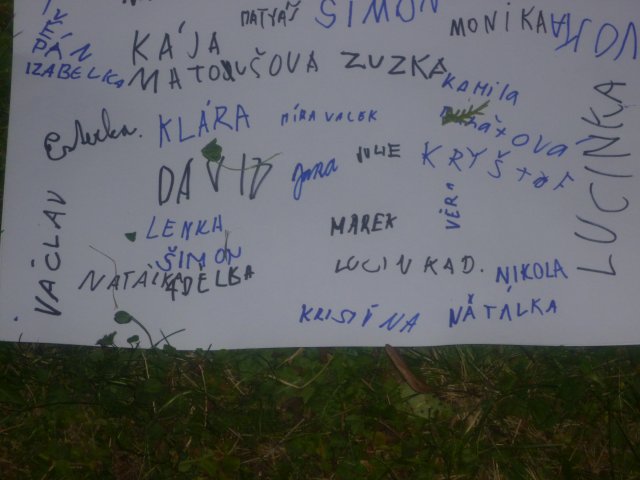 MATYÁŠ
ŠIMON
MONIKA
PÁN
IZABELKA
KÁJA
MATOUŠOVA
ZUZKA
KAMILA
KLÁRA
MÍRA VALEK
LUCINKA
DAVID
Jana
JULIE
KRYŠTOF
VĚRA
VÁCLAV
LENKA
ŠIMON
MAREK
NATÁLKA
ADÉLKA
LUCINKA D.
NIKOLA
KRISTÝNA
NATÁLKA